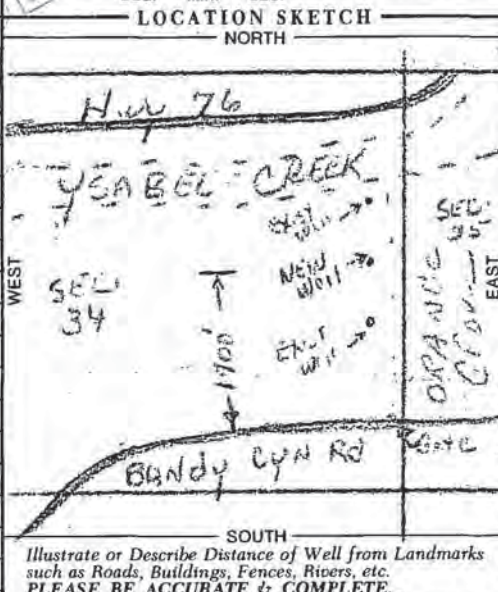 LOCATION SKETCH
NORTH
Hwy 76
YSABEL CREEK
EXIST
WELL
NEW
WELL
EXIST
WELL
SEC
34
SEC.
35
WEST
EAST
1700'
ORANGE
GROVE
BANDY CYN Rd
SOUTH
Illustrate or Describe Distance of Well from Landmarks
such as Roads, Buildings, Fences, Rivers, etc.
PLEASE BE ACCURATE & COMPLETE.